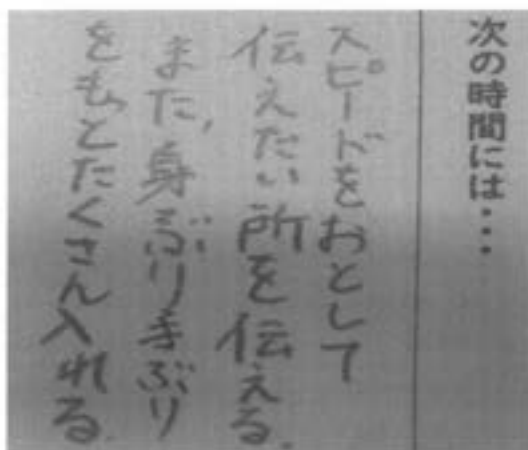 次の時間には・・・
スピードをおとして
伝えたい所を伝える。
また、身ぶり手ぶり
をもっとたくさん入れる。